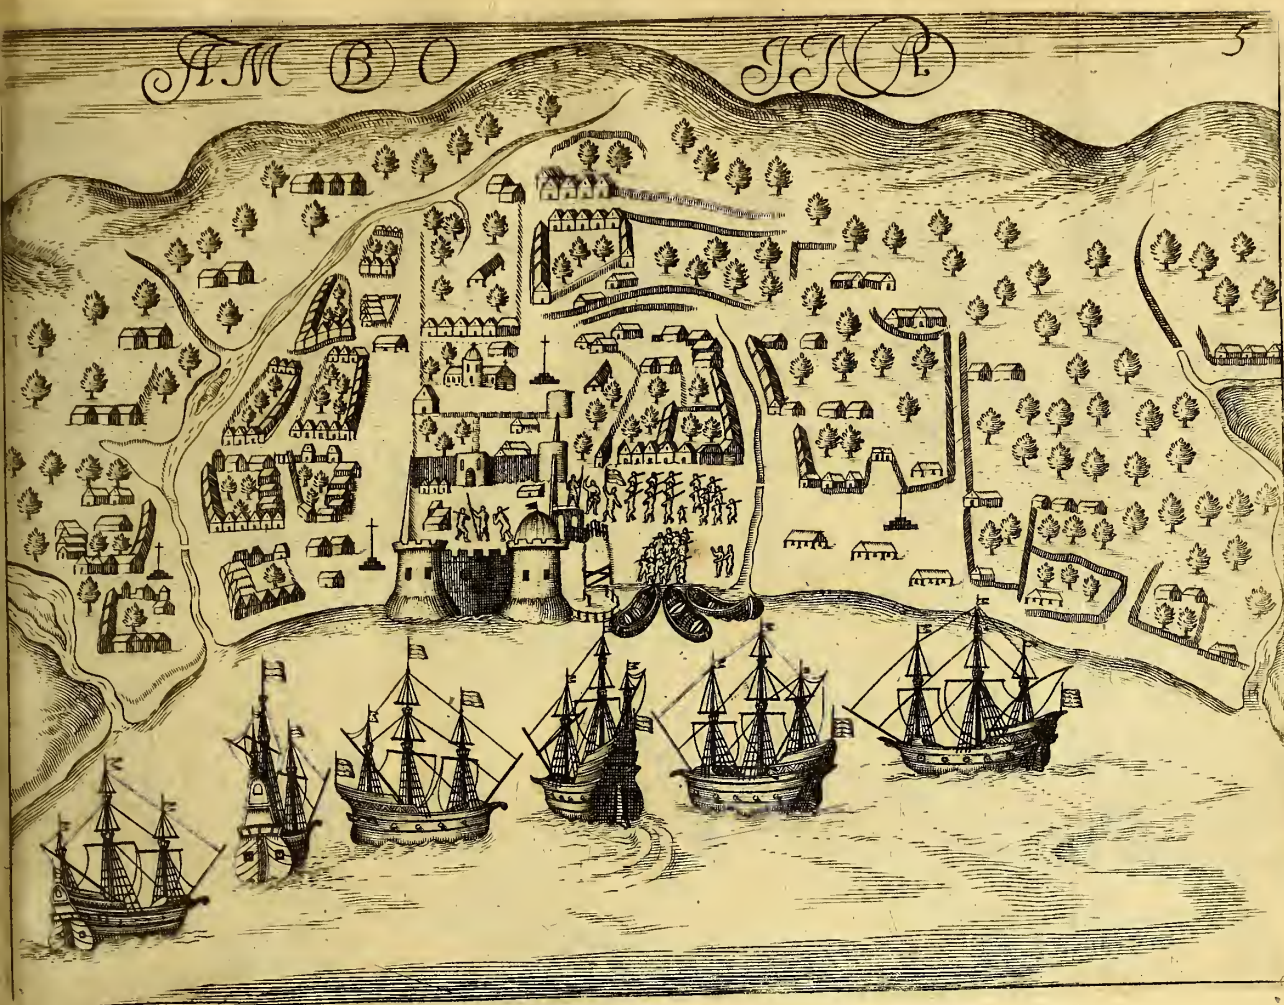 AMBOINA 5